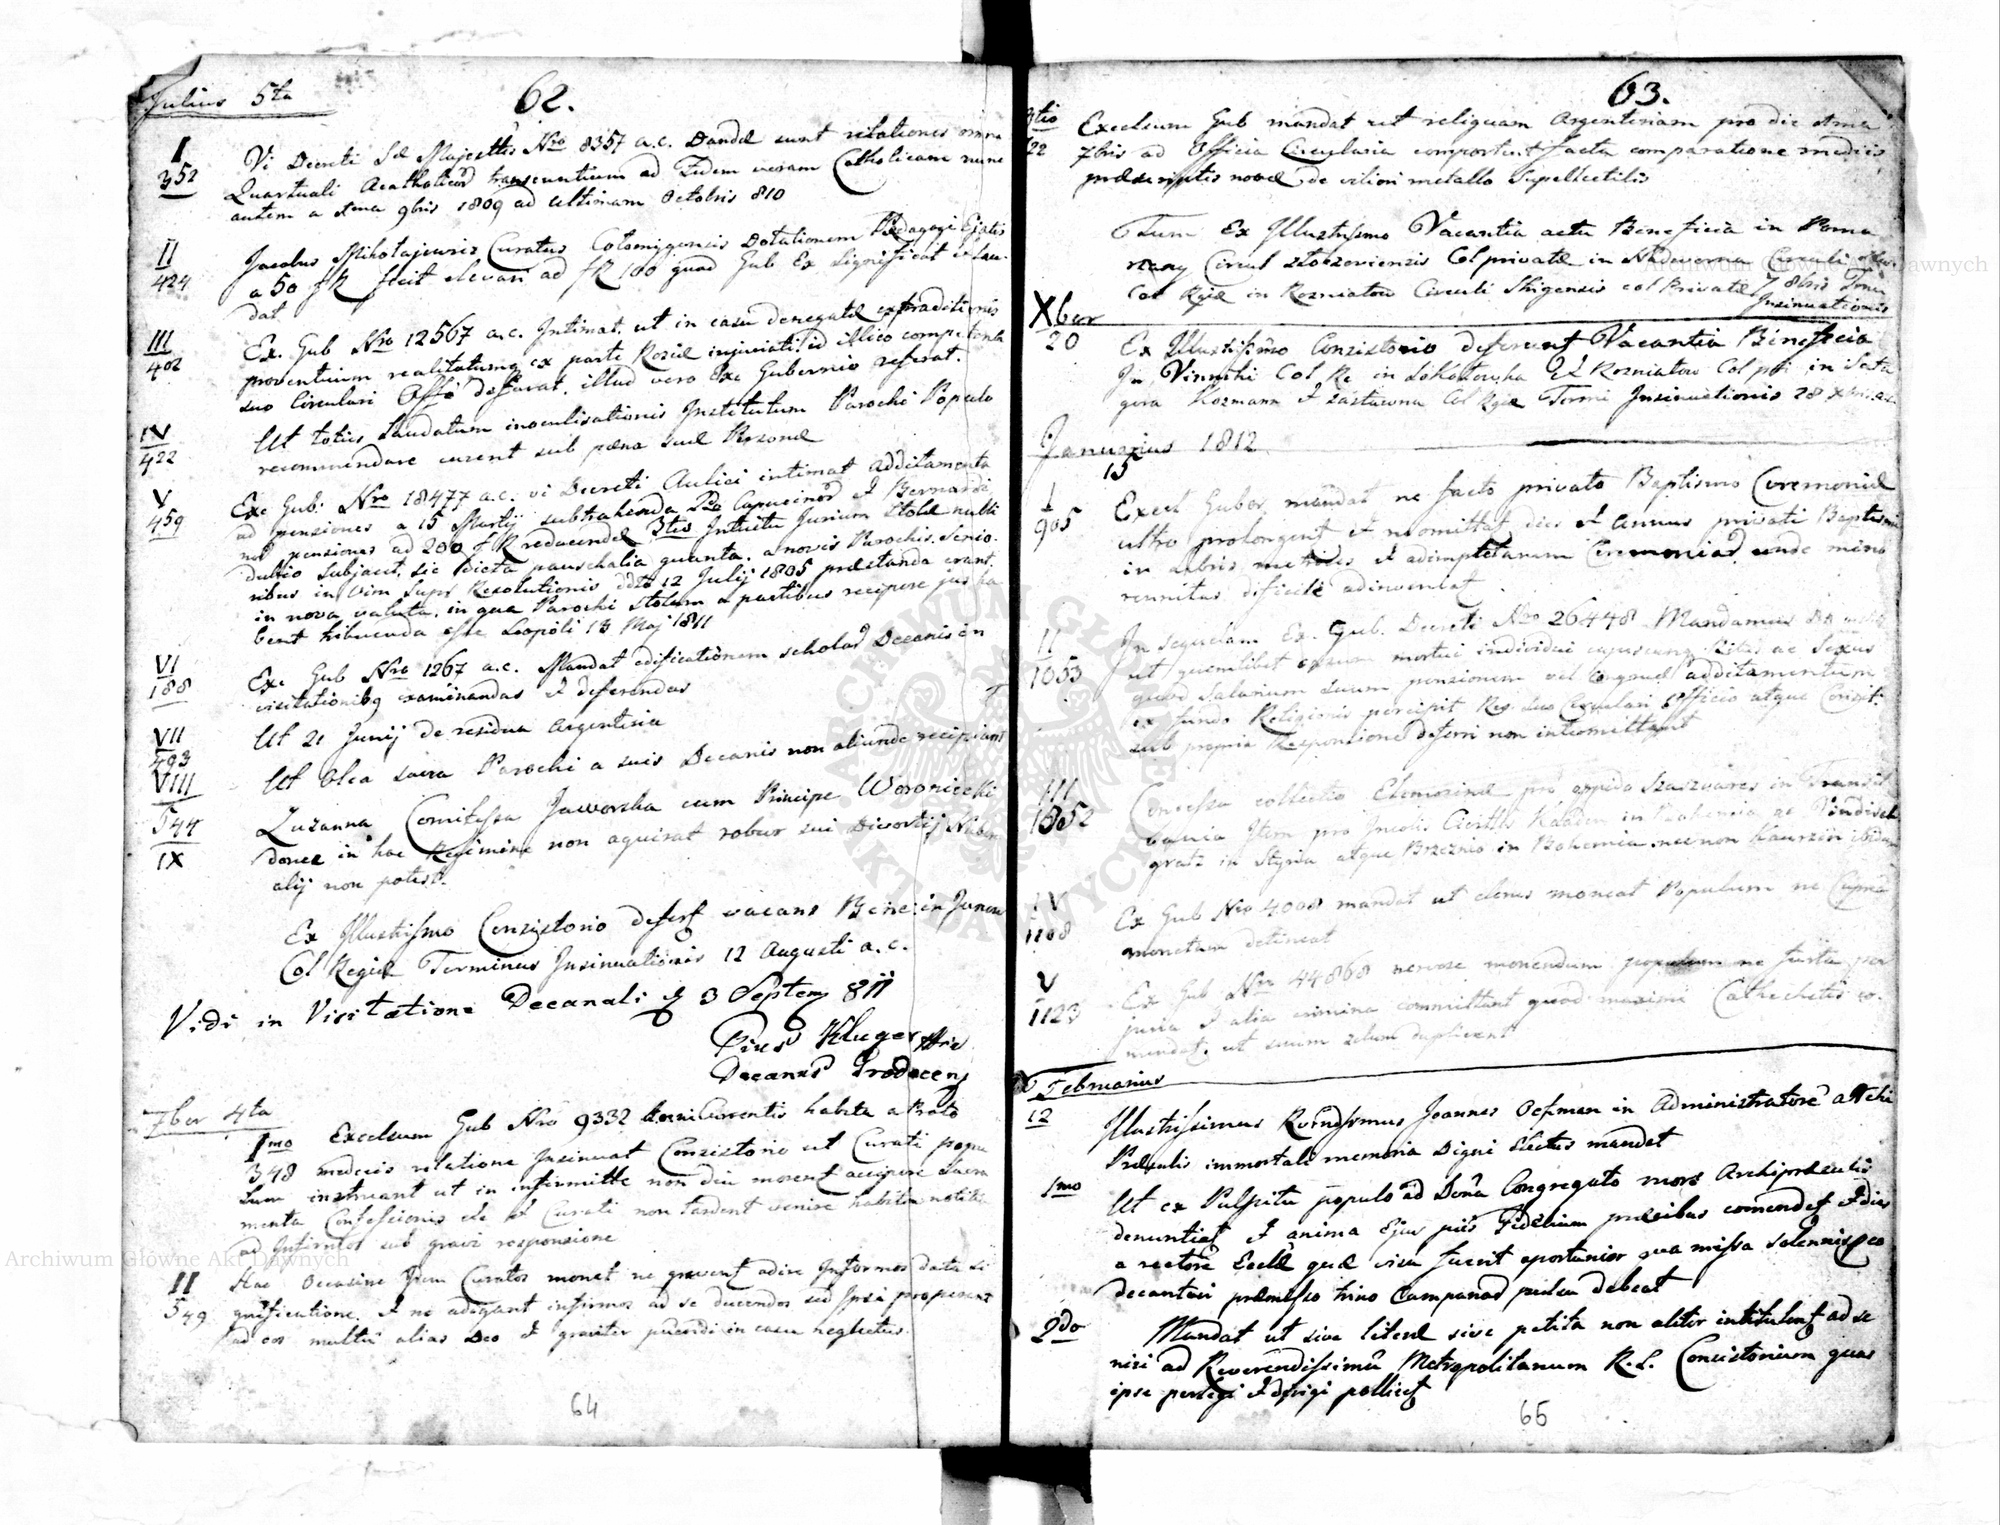 Julius 5ta
62.
I
352
Vi Decreti Sæ Majesttis Nro 8357 a.c. Dandæ sunt relationes omni
Quartuali Acatholicor transeuntium ad Fidem veram Catholicam nunc
autem a 1ma 9bris 1809 ad ultimam Octobris 810
II
424
Jacobus Mikołajewicz Curatus Dotationem Pædagogi
a 50 fR fecit elevari ad fR 100 quod Gub Ex significat
dat
III
402
Ex. Gub Nro 12567 a.c. Intimat, ut in casu denegatæ extraditionis
proventuum realitatumq ex parte injuriati id illico competenti
suo Circulari Offo deferat, illud vero Exc Gubernio referat.
IV
422
Ut toties laudatum inoculisationis Institutum Parochi Populo
recommendare curent sub pæna suæ Personæ
V
459
Exc Gub: Nro 18477 a.c. vi Decreti Aulici intimat additamenta
ad pensiones a 15 Martij subtrahenda Capucinor & Bernardi
nor pensiones ad 200 fR reducendæ 3tio Intuitu Jurium Stolæ nulli
dubio subjacet, sic dicta pauschalia quanta, a novis Parochis Senio
ribus in vim Supr Resolutionis ddto 12 Julij 1805 præstanda erant,
in nova valuta, in qua Parochi Stolam a partibus recipere jus ha
bent tribuenda esse Leopoli 13 Maj 1811
VI
188
Exc Gub Nro 1267 a.c. Mandat edificationem scholar Decanis in
visitationibq examinandas & deferendas
VII
493
Ut 21 Junij de residua Argenteria
VIII
544
Ut Olea sacra Parochi a suis Decanis non aliunde recipiant
IX
Zuzanna Comitessa Jaworska cum Principe Woroniecki
donec in hoc Regimine non aquirat robur sui Divortij Nuben
alij non potest.
Ex Illustrissmo Consistorio defert vacans Bene: in
Col Regiæ Terminus Insinuationis 12 Augusti a.c.
Vidi in Visitatione Decanali 3 Septem 811
Pius Kluger
Decanus
7ber 4ta
1mo Excelsum Gub Nro 9332 Currentis habita a Proto
348 medicis relatione Insinuat Consistorio ut Curati popu
lum instruant ut in infirmitte non diu morent accipere Sacra
menta Confessionis etc et Curati non tardent venire habita notitia
ad Infirmos sub gravi responsione
II
549
Hac Occasine Idem Curatos monet ne gravent adire Infirmos data si
gnificatione, & ne adigant infirmos ad se ducendos sed Ipsi properent
ad eos multu alias Deo & graviter puendi in casu neglectus.
64
63.
3tio
722
Excelsum Gub mandat ut reliquam Argenteriam pro die 1ma
7bris ad Officia Circularia comportent facta comparatione mediis
præscriptis novæ de viliori metallo Supellectilis
Tum Ex Illustrissmo Vacantia actu Beneficia in Poma
rzany Circul Złoczoviensis Col privatæ in Nadworna Circuli
Col Rgiæ in Rozniatow Circuli Strigensis col Privatæ 7 8bris Tonu
Insinuationis
Xber
20
Ex Illustrissimo Consistorio deferent Vacantia Beneficia
In Vinniki Col Re in Sokołowka Et Rozniatow Col pri in
gura Kozmann & Zastawna Col Rgiæ Termi Insinuationis 28 Xbris
Januarius 1812
15
I
905
Excel Guber mandat ne facto privato Baptismo Ceremoniæ
ultro prolongent & ne omittat dies & annus privati Baptismi
in Libris metrices & adimpletarum Ceremoniar unde mino
rennitas dificile adinveniat
II
1053
In sequelam Ex. Gub. Decreti Nro 26448 Mandamus
ut quemlibet casum mortui individui cujuscunq Ritus ac Sexus
quod Salarium suum pensionem vel congruæ additamentum
ex fundo Religionis percipit Reg. suo Circulari Officio atque Consist.
sub propria Responsione deferri non intermittant
III
1052
Concessa collectio Elemosinæ pro oppido Szaszvaros in Transil
vania Item pro Incolis Civittis Kaaden in Bohemia ac Vindisch
gratz in Styria atque Brzeznio in Bohemia nec non Kaurzin ibidem
IV
1108
Ex Gub Nro 4008 mandat ut clerus moneat Populum ne Cupra
monetam detineat
V
1123
Ex Gub Nro 44868 nervose monendum populum ne furta per
juria & alia crimina committant quod maxime Cathechetis co.
mendat, ut suum zelum duplicent
Februarius
12
Illustrissimus Rvndssmus Joannes in Administratore
Præsulis immortali memoria Digni Electus mandat
1mo
Ut ex Pulpitu populo ad Dona Congregato mors Archipræsulis
denuntiat & anima Ejus piis Fidelium præcibus comendet &
a rectore Eccle quæ visa fuerit oportunior una missa solennis
decantari præmisso trino Campanar pulsu debeat
2do
Mandat ut sive literæ sive petita non aliter intitulent ad se
nisi ad Reverendissimu Metropolitanum R.L. Consistorium quas
ipse & pollicet
65
Archiwum Główne Akt Dawnych
Archiwum Główne Akt Dawnych
ARCHIWUM GŁÓWNE AKT DAWNYCH